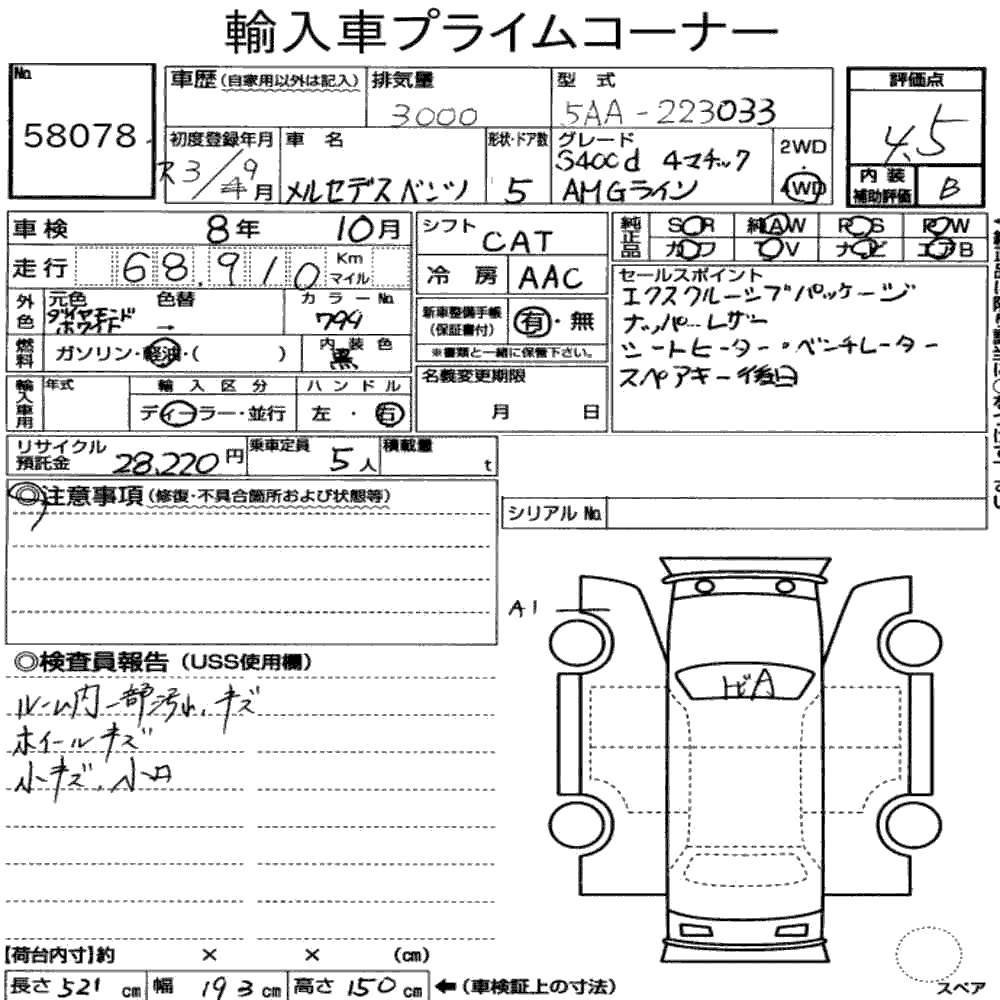 輸入車プライムコーナー
No. 58078
車歴(自家用以外は記入)
排気量 3000
型式 5AA-223033
評価点 4.5
初度登録年月 R3/9月
車名 メルセデスベンツ
形状・ドア数 5
グレード S400d 4マチック AMGライン
2WD・4WD
内装補助評価 B
車検 8年 10月
走行 68,910 Km マイル
シフト CAT
冷房 AAC
純正品 SR 純AW PS PW
カワ TV ナビ エアB
外色 元色 ダイヤモンドホワイト 色替 → カラーNo. 799
燃料 ガソリン・軽油・( ) 内装色 黒
新車整備手帳(保証書付) 有・無
※書類と一緒に保管下さい。
セールスポイント
エクスクルーシブパッケージ
ナッパーレザー
シートヒーター・ベンチレーター
スペアキー後日
輸入車用 年式 輸入区分 ハンドル
ディーラー・並行 左・右
名義変更期限 月 日
リサイクル預託金 28,220円
乗車定員 5人
積載量 t
シリアルNo.
◎注意事項(修復・不具合箇所および状態等)
A1
ヒビA
◎検査員報告(USS使用欄)
ルーム内一部汚れ、キズ
ホイールキズ
小キズ、小凹
【荷台内寸】約 × × (cm)
長さ 521 cm 幅 193 cm 高さ 150 cm ←(車検証上の寸法)
スペア